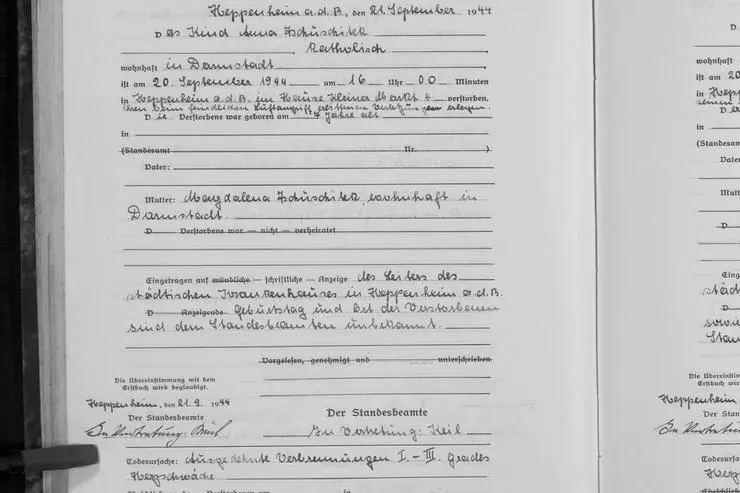 Heppenheim a.d.B., den 21. September 1944
Das Kind Anna Zschuschitek
, Katholisch
wohnhaft in Darmstadt
ist am 20. September 1944 um 16 Uhr 00 Minuten
in Heppenheim a.d.B. im Hause Kleiner Markt 4 verstorben.
ihren beim feindlichen Luftangriff erlittenen erlegen.
Die Verstorbene war geboren am 7 Jahre alt
in
(Standesamt Nr. )
Vater:
Mutter: Magdalena Zschuschitek, wohnhaft in
Darmstadt.
D Verstorbene war — nicht — verheiratet
Eingetragen auf mündliche — schriftliche — Anzeige des Leiters des
städtischen Krankenhauses in Heppenheim a.d.B.
D Anzeigende Geburtstag und Ort der Verstorbenen
sind dem Standesbeamten unbekannt.
Vorgelesen, genehmigt und unterschrieben
Die Übereinstimmung mit dem
Erstbuch wird beglaubigt.
Heppenheim, den 21. 9. 1944
Der Standesbeamte
In Vertretung:
Der Standesbeamte
In Vertretung: Keil
Todesursache: Ausgedehnte Verbrennungen I.–III. Grades
Herzschwäche